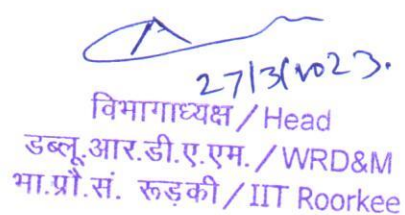 27/3/2023.
विभागाध्यक्ष / Head
डब्लू.आर.डी.ए.एम. / WRD&M
भा.प्रौ.सं. रूड़की / IIT Roorkee